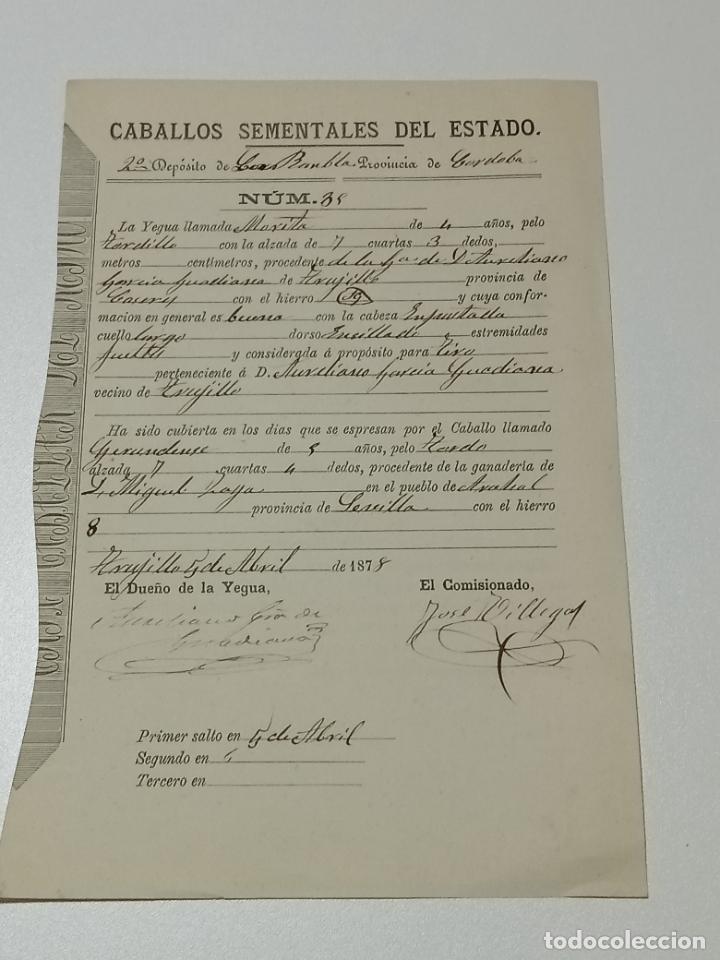 CABALLOS SEMENTALES DEL ESTADO.
2º Depósito de La Rambla Provincia de Cordoba
NÚM. 38
La Yegua llamada Morita de 4 años, pelo
tordillo con la alzada de 7 cuartas 3 dedos,
metros centímetros, procedente de la Gª de D Aureliano
Garcia Guadiana de Trujillo provincia de
Caceres con el hierro y cuya confor-
macion en general es buena con la cabeza
cuello largo dorso Ensillado estremidades
y considerada á propósito para tiro
perteneciente á D. Aureliano Garcia Guadiana
vecino de Trujillo
Ha sido cubierta en los dias que se espresan por el Caballo llamado
Gerundense de 5 años, pelo tordo
alzada 7 cuartas 4 dedos, procedente de la ganadería de
D. Miguel Zayas en el pueblo de Arahal
provincia de Sevilla con el hierro
8
Trujillo 5 de Abril de 1878
El Dueño de la Yegua, El Comisionado,
Aureliano Gra de José Villegas
Guadiana
Primer salto en 5 de Abril
Segundo en
Tercero en
todocoleccion
todocoleccion.net